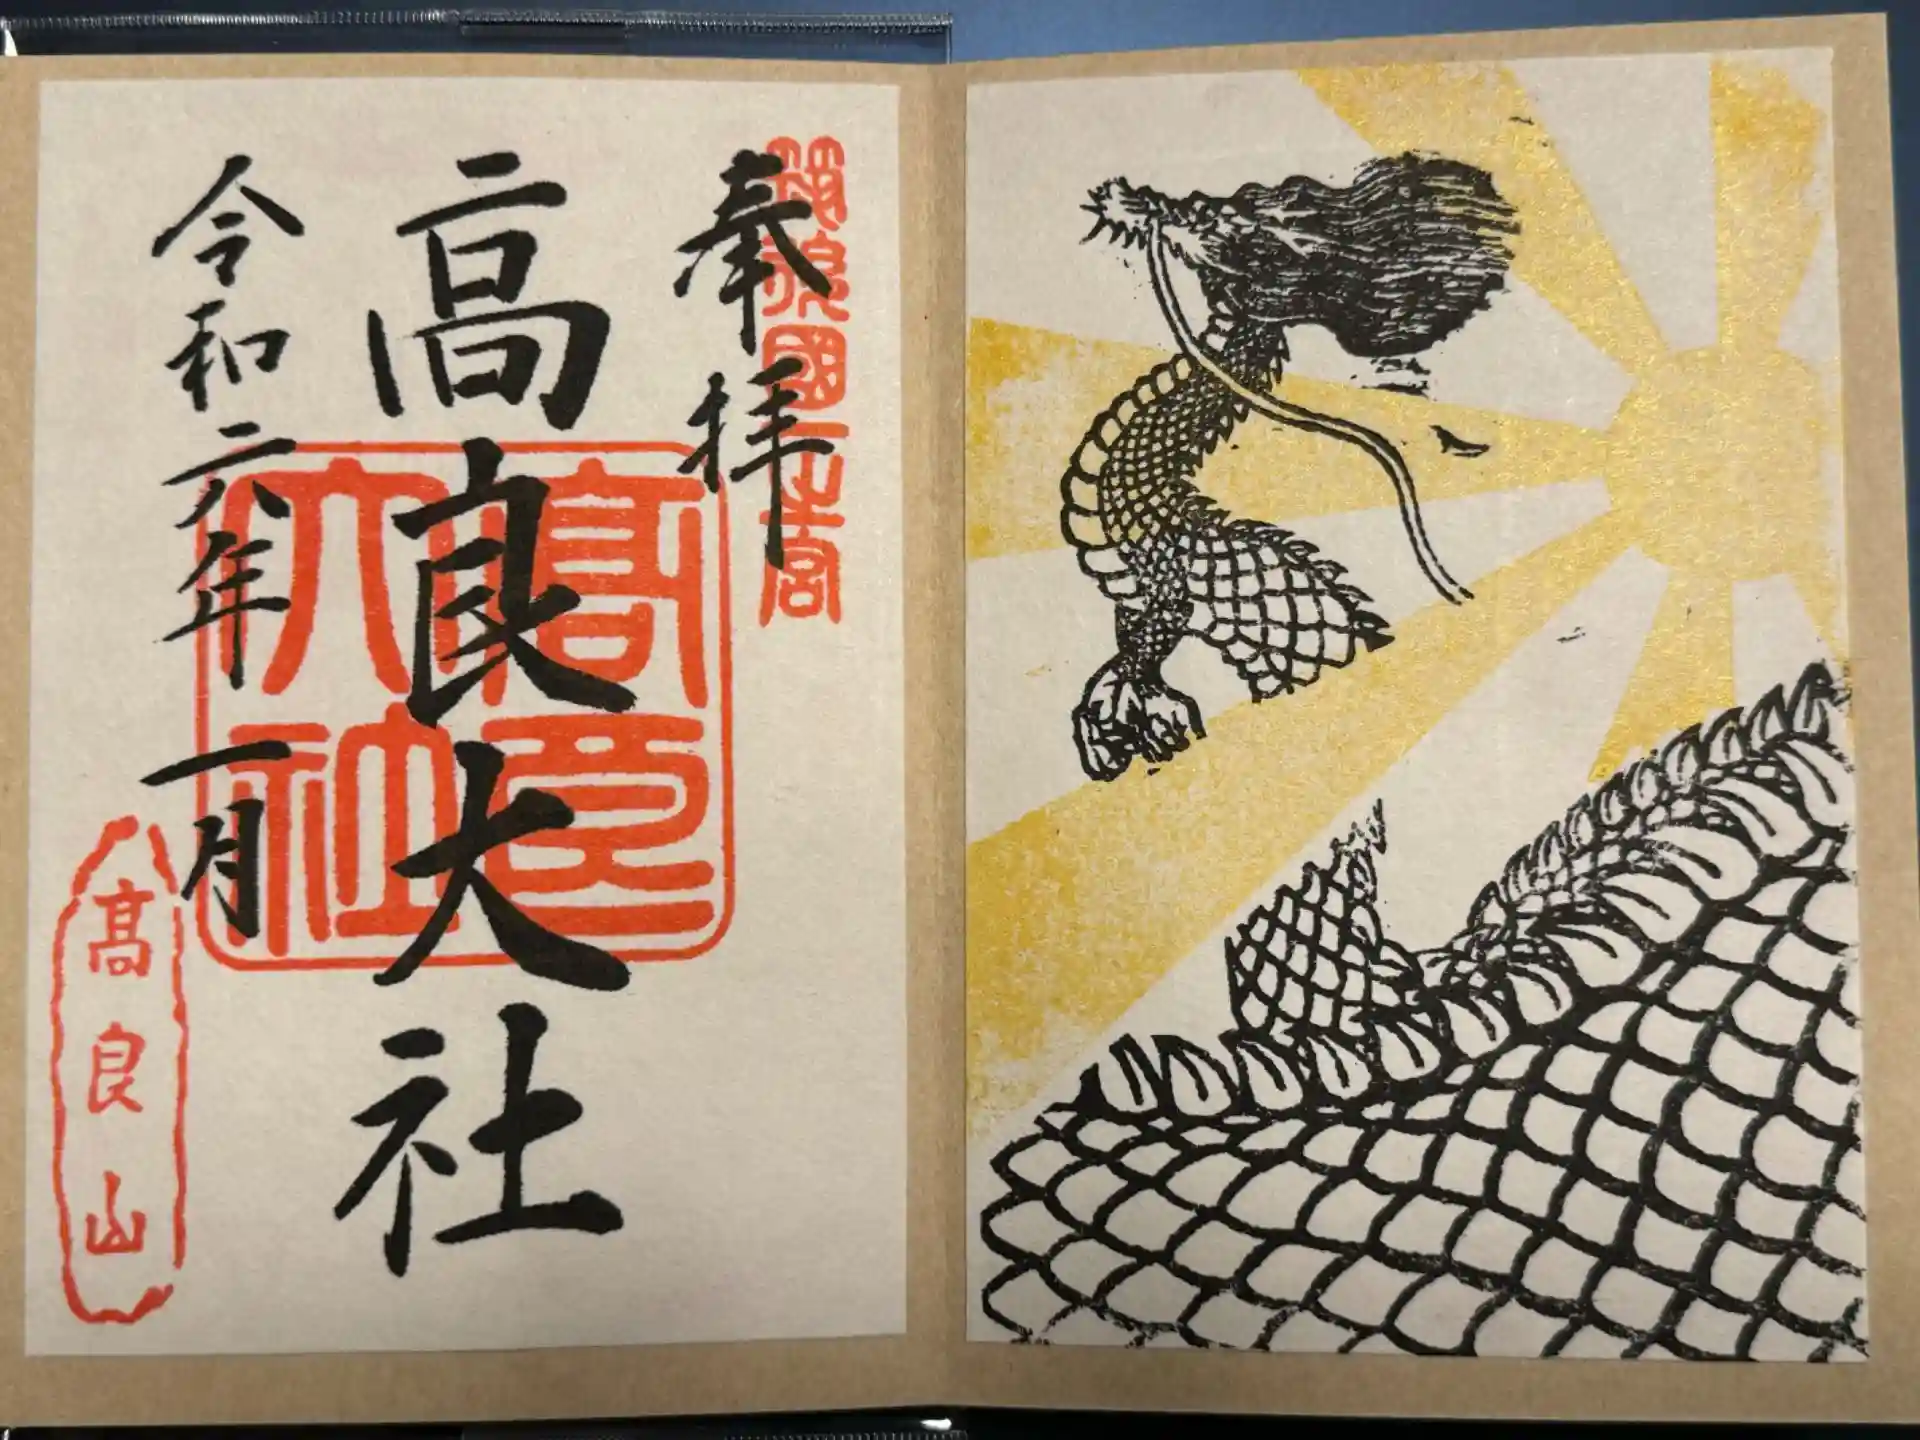 奉拝
筑後國一之宮
髙良大社
髙良大社
令和六年一月
髙良山